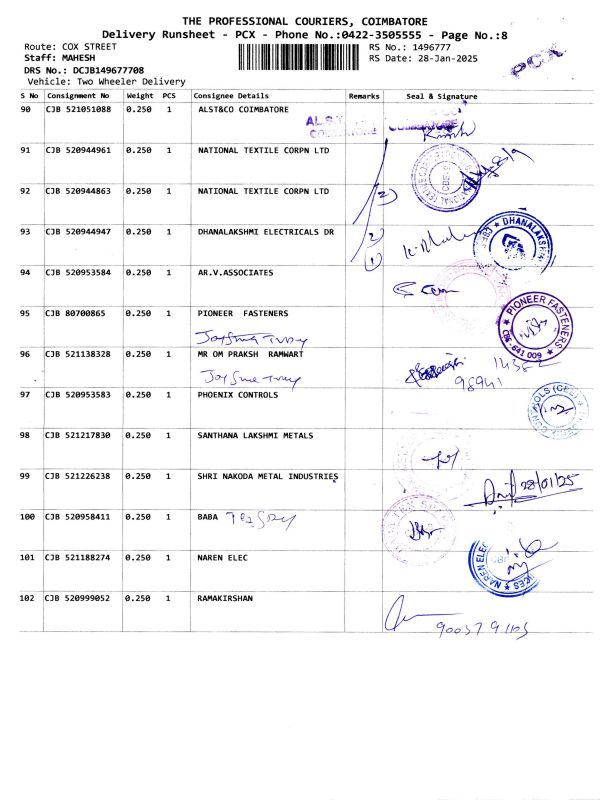 THE PROFESSIONAL COURIERS, COIMBATORE
Delivery Runsheet - PCX - Phone No.:0422-3505555 - Page No.:8
Route: COX STREET RS No.: 1496777
Staff: MAHESH RS Date: 28-Jan-2025
DRS No.: DCJB149677708
Vehicle: Two Wheeler Delivery
PCX
S No Consignment No Weight PCS Consignee Details Remarks Seal & Signature
90 CJB 521051088 0.250 1 ALST&CO COIMBATORE
91 CJB 520944961 0.250 1 NATIONAL TEXTILE CORPN LTD
92 CJB 520944863 0.250 1 NATIONAL TEXTILE CORPN LTD
2
93 CJB 520944947 0.250 1 DHANALAKSHMI ELECTRICALS DR
DHANALAKSHMI
2
1
94 CJB 520953584 0.250 1 AR.V.ASSOCIATES
95 CJB 80700865 0.250 1 PIONEER FASTENERS
PIONEER FASTENERS
CBE - 641 009
96 CJB 521138328 0.250 1 MR OM PRAKSH RAMWART
98941
97 CJB 520953583 0.250 1 PHOENIX CONTROLS
98 CJB 521217830 0.250 1 SANTHANA LAKSHMI METALS
99 CJB 521226238 0.250 1 SHRI NAKODA METAL INDUSTRIES
28/01/25
100 CJB 520958411 0.250 1 BABA
101 CJB 521188274 0.250 1 NAREN ELEC
NAREN ELEC
102 CJB 520999052 0.250 1 RAMAKIRSHAN